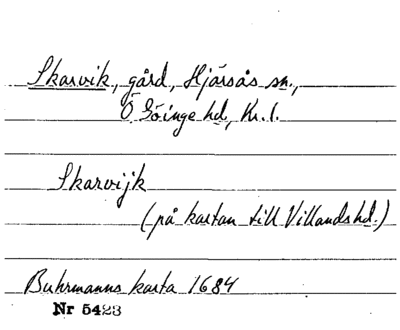 Skarvik, gård, Hjärsås sn.,
Ö Göinge hd, Kr. l.
Skarvijk
(på kartan till Villands hd.)
Buhrmanns karta 1684
Nr 5423